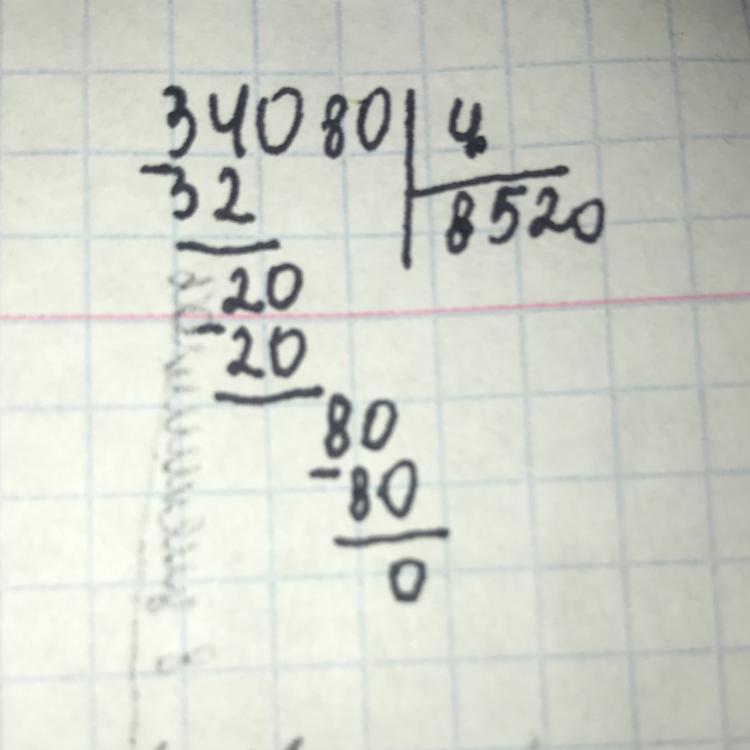 34080 | 4
-32 | 8520
20
-20
80
-80
0